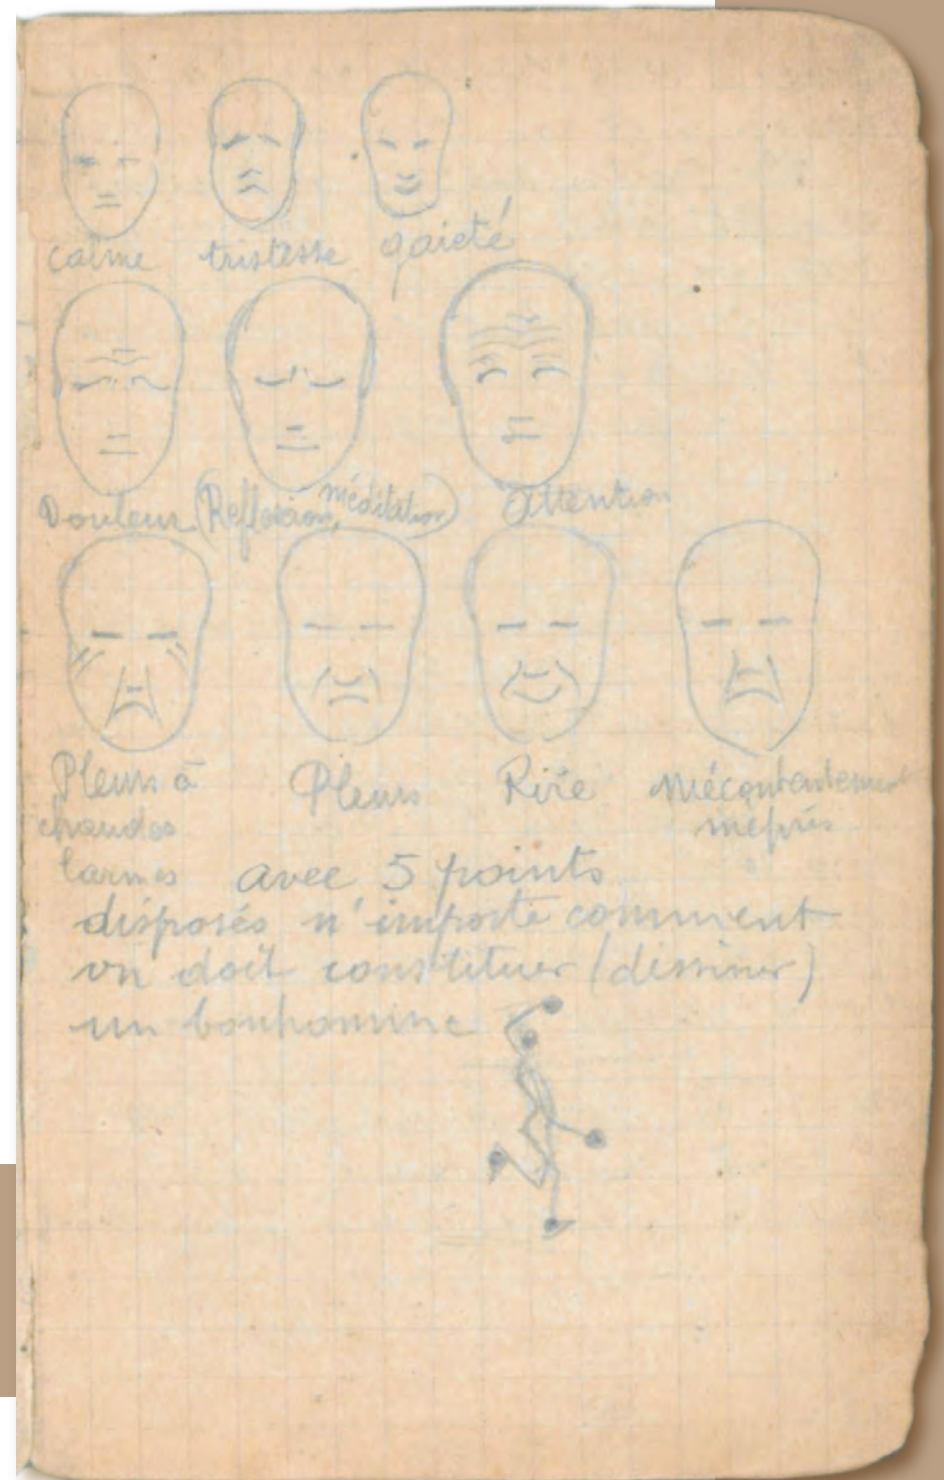 calme tristesse gaieté
Douleur (Reflexion, méditation) attention
Pleurs à chaudes larmes
Pleurs
Rire
Mécontentement mépris
avec 5 points
disposés n'importe comment
on doit constituer (dessiner)
un bonhomme